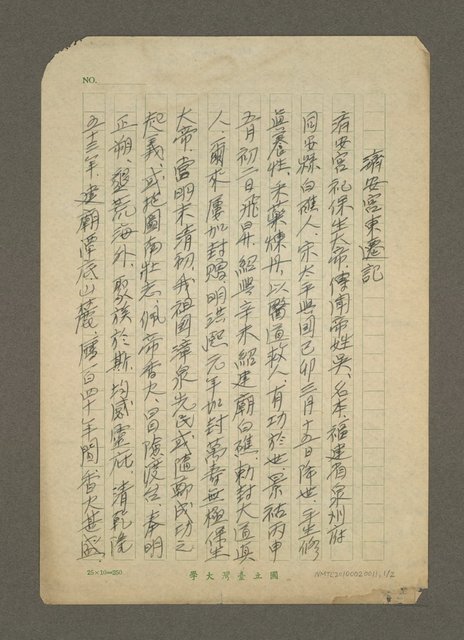 NO.
濟安宮東遷記
濟安宮祀保生大帝、傳聞帝姓吳、名本、福建省泉州府
同安縣白礁人、宋太平興國己卯三月十五日降世、平生修
真養性、采藥煉丹、以醫道救人、有功於世、景祐丙申
五月初二日飛昇、紹興辛未紹建廟白礁、勅封大道真
人、爾來屢加封贈、明洪熙元年加封萬壽無極保生
大帝、當明末清初、我祖國漳泉先民、或隨鄭成功之
起義、或抱圖南壯志、佩帝香火、冒險渡台、奉明
正朔、墾荒海外、聚族於斯、均感靈庇、清乾隆
五十三年建廟潭底山麓、歷百四十年間、香火甚盛、
25×10=250
國立臺灣大學
NMTL20100020011, 1/2